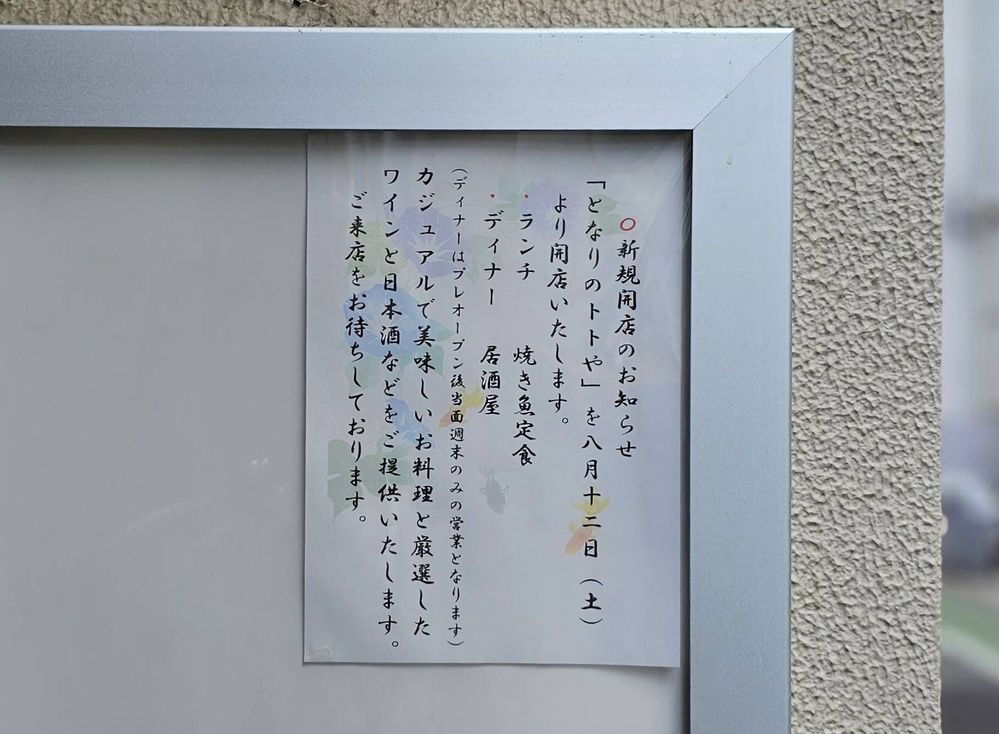 ○新規開店のお知らせ
「となりのトトや」を八月十二日（土）
より開店いたします。
・ランチ　焼き魚定食
・ディナー　居酒屋
（ディナーはプレオープン後当面週末のみの営業となります）
カジュアルで美味しいお料理と厳選した
ワインと日本酒などをご提供いたします。
ご来店をお待ちしております。